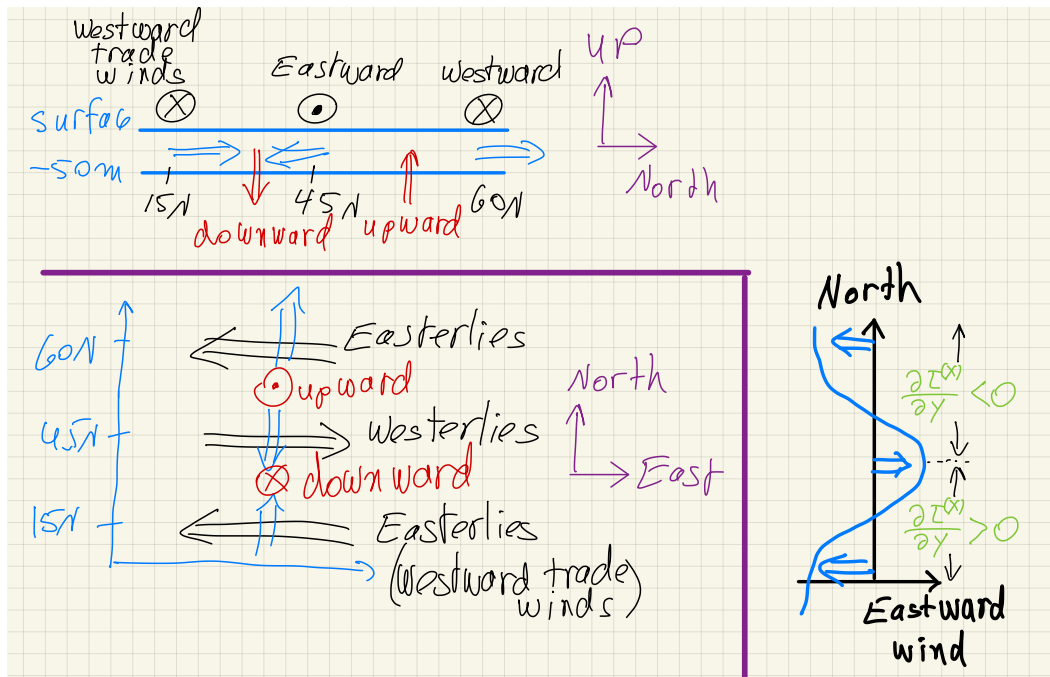 Westward
trade
winds
Eastward
Westward
surface
-50m
15N
45N
60N
downward
upward
UP
North
60N
Easterlies
upward
45N
Westerlies
downward
15N
Easterlies
(Westward trade
winds)
North
East
North
∂τ^(x)/∂y <0
∂τ^(x)/∂y >0
Eastward
wind